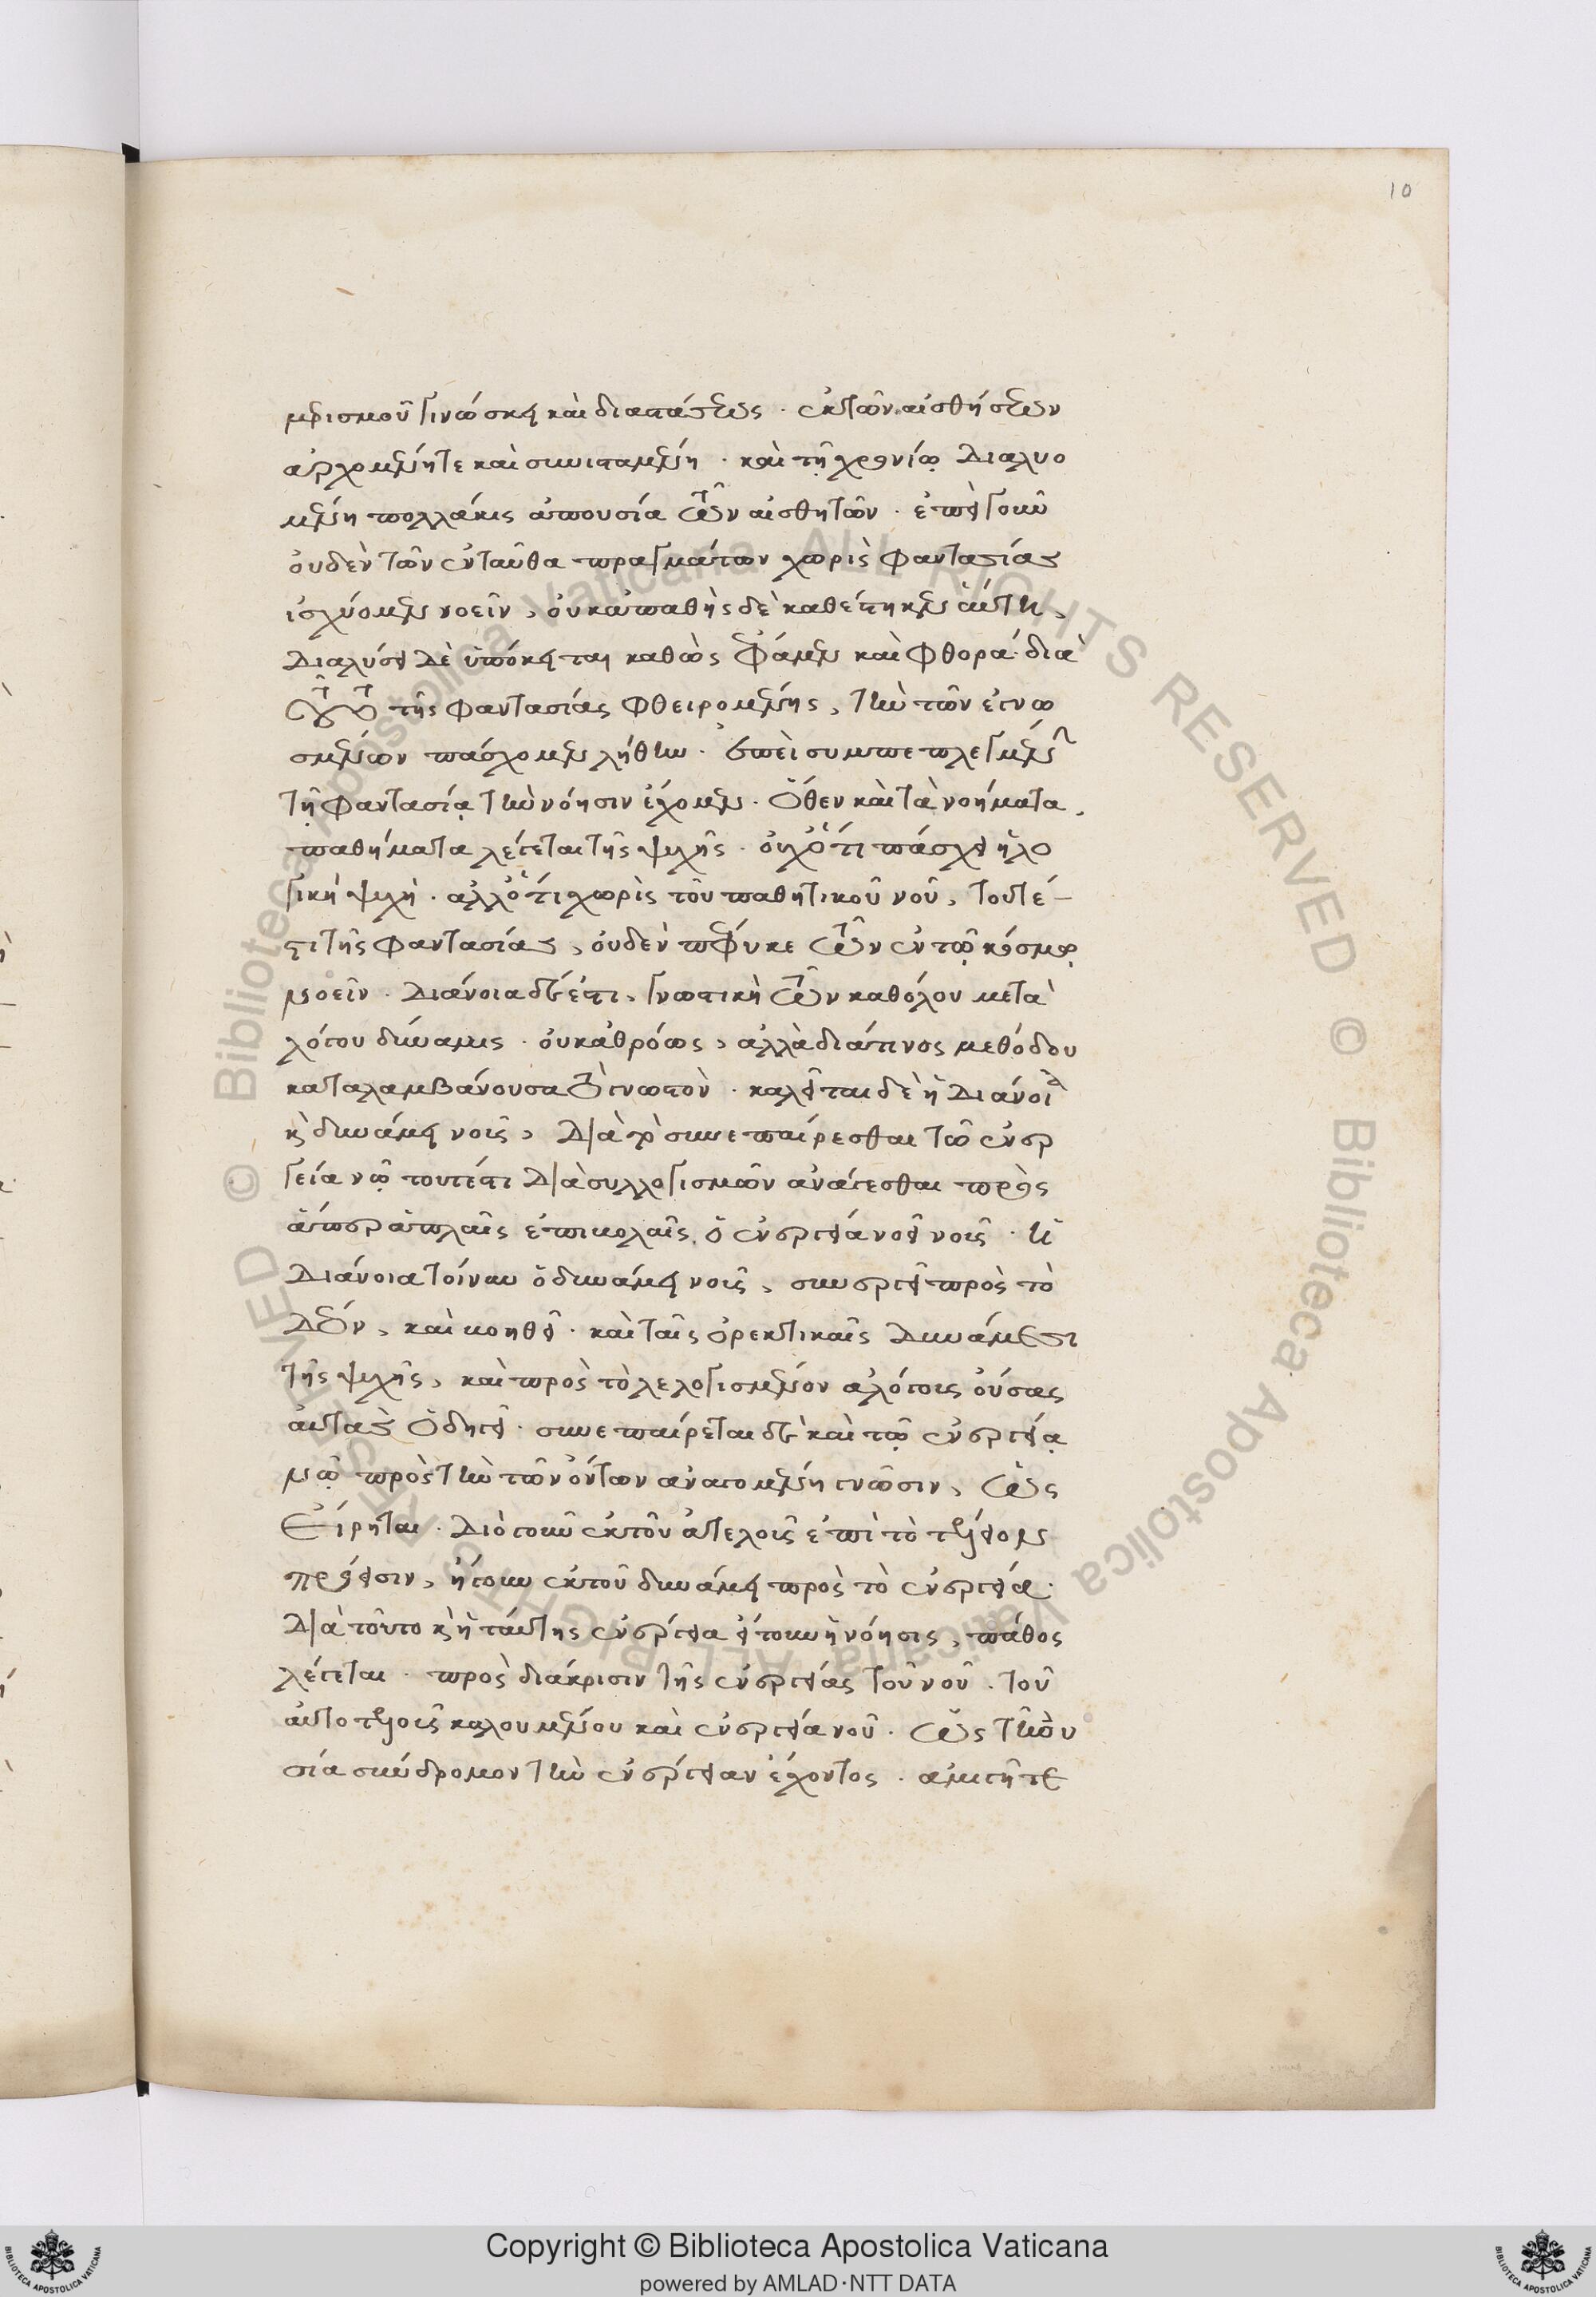 10
μερισμοῦ γινώσκει καὶ διαστάσεως · ἐκ τῶν αἰσθήσεων
ἀρχομένη τε καὶ συνισταμένη · καὶ τῆ χρονίῳ διαλυο
μένη πολλάκις ἀπουσία τῶν αἰσθητῶν · ἐπεὶ γοῦν
οὐδὲν τῶν ἐνταῦθα πραγμάτων χωρὶς φαντασίας
ἰσχύομεν νοεῖν, οὐκ ἀπαθὴς δὲ καθέστηκεν αὕτη,
διαλύσει δὲ ὑπόκειται καθὼς φάμεν καὶ φθορά· διὰ
τοῦτο τῆς φαντασίας φθειρομένης, τὴν τῶν ἐγνω
σμένων πάσχομεν λήθην · ἐπεὶ συμπεπλεγμένην
τῇ φαντασίᾳ τὴν νόησιν ἔχομεν · ὅθεν καὶ τὰ νοήματα,
παθήματα λέγεται τῆς ψυχῆς · οὐχ ὅτι πάσχει ἡ λο
γικὴ ψυχὴ · ἀλλ' ὅτι χωρὶς τοῦ παθητικοῦ νοῦ, τουτέ-
στι τῆς φαντασίας, οὐδὲν πέφυκε τῶν ἐν τῷ κόσμῳ
νοεῖν · διάνοια δέ ἐστι, γνωστικὴ τῶν καθόλου μετὰ
λόγου δύναμις · οὐκ ἀθρόως, ἀλλὰ διά τινος μεθόδου
καταλαμβάνουσα τὸ γνωστὸν · καλεῖται δὲ ἡ διάνοια
κὶ δυνάμει νοῦς, διὰ τὸ συνεπαίρεσθαι τῶ ἐνερ
γεία νῷ τουτέστι διὰ συλλογισμῶν ἀνάγεσθαι πρὸς
ἅπερ ἁπλαῖς ἐπιβολαῖς, ὁ ἐνεργείᾳ νοεῖ νοῦς · ἡ
διάνοια τοίνυν ὁ δυνάμει νοῦς, συνεργεῖ πρὸς τὸ
δέον, καὶ βοηθεῖ · καὶ ταῖς ὀρεκτικαῖς δυνάμεσι
τῆς ψυχῆς, καὶ πρὸς τὸ λελογισμένον ἀλόγοις οὔσας
αὐτὰς ὁδηγεῖ · συνεπαίρεται δὲ καὶ τῷ ἐνεργείᾳ
νῷ πρὸς τὴν τῶν ὄντων ἀναγομένη γνῶσιν, ὡς
εἴρηται · διὸ γοῦν ἐκ τοῦ ἀτελοῦς ἐπὶ τὸ τέλειον
πρόεισιν, ἤγουν ἐκ τοῦ δυνάμει πρὸς τὸ ἐνεργείᾳ ·
διὰ τοῦτο κὶ ἡ ταύτης ἐνέργεια εἴτουν ἡ νόησις, πάθος
λέγεται · πρὸς διάκρισιν τῆς ἐνεργείας τοῦ νοῦ · τοῦ
αὐτοτελοῦς καλουμένου καὶ ἐνεργείᾳ νοῦ · ὡς τῆ οὐ
σία σύνδρομον τὴν ἐνέργειαν ἔχοντος · ἀμιγῆ τε
Copyright © Biblioteca Apostolica Vaticana
powered by AMLAD·NTT DATA